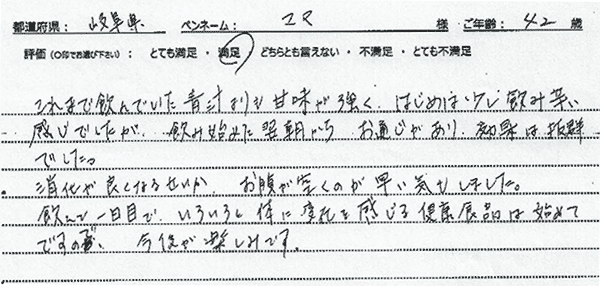 都道府県： 岐阜県 ペンネーム： エマ 様 ご年齢： 42 歳
評価（○印でお選び下さい）： とても満足・満足・どちらとも言えない・不満足・とても不満足
これまで飲んでいた青汁よりも甘味が強く、はじめは少し飲み辛い
感じでしたが、飲み始めた翌朝から お通じがあり、効果は抜群
でした。
消化が良くなるせいか、お腹が空くのが早い気もしました。
飲んで一日目で、いろいろと体に変化を感じる健康食品は始めて
ですので、今後が楽しみです。